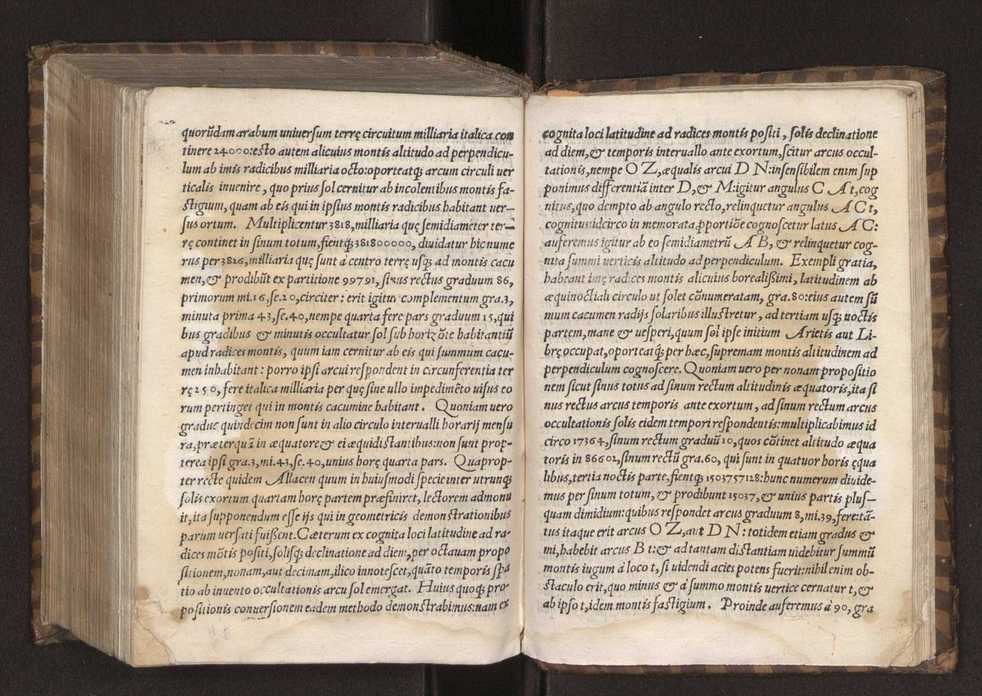 quorũdam arabum uniuersum terrę circuitum milliaria italica con
tinere 24000: esto autem alicuius montis altitudo ad perpendicu-
lum ab imis radicibus milliaria octo: oporteatq́ȝ arcum circuli uer
ticalis inuenire, quo prius sol cernitur ab incolentibus montis fa-
stigium, quam ab eis qui in ipsius montis radicibus habitant uer-
sus ortum. Multiplicentur 3818, milliaria quę semidiameter ter-
rę continet in sinum totum, fientq́ȝ 381800000, diuidatur hic nume
rus per 3826, milliaria quę sunt à centro terrę usq́ȝ ad montis cacu
men, & prodibũt ex partitione 99791, sinus rectus graduum 86,
primorum mi. 16, se. 20, circiter: erit igitur complementum gra. 3,
minuta prima 43, se. 40, nempe quarta fere pars graduum 15, qui
bus gradibus & minutis occultatur sol sub horizõte habitantiũ
apud radices montis, quum iam cernitur ab eis qui summum cacu-
men inhabitant: porro ipsi arcui respondent in circunferentia ter
rę 250, fere italica milliaria per quę sine ullo impedimẽto uisus eo
rum pertinget qui in montis cacumine habitant. Quoniam uero
gradus quindecim non sunt in alio circulo interualli horarij mensu
ra, præterquã in æquatore & ei æquidistantibus: non sunt prop-
terea ipsi gra. 3, mi. 43, se. 40, unius horę quarta pars. Quaprop-
ter recte quidem Allacen quum in huiusmodi specie inter utrunq́ȝ
solis exortum quartam horę partem præfiniret, lectorem admonu
it, ita supponendum esse ijs qui in geometricis demonstrationibus
parum uersati fuissent. Cæterum ex cognita loci latitudine ad ra-
dices mõtis positi, solisq́ȝ declinatione ad diem, per octauam propo
sitionem, nonam, aut decimam, ilico innotescet, quãto temporis spa
tio ab inuento occultationis arcu sol emergat. Huius quoq́ȝ pro-
positionis conuersionem eadem methodo demonstrabimus: nam ex
cognita loci latitudine ad radices montis positi, solis declinatione
ad diem, & temporis interuallo ante exortum, scitur arcus occul-
tationis, nempe O Z, æqualis arcui D N: insensibilem enim sup
ponimus differentiã inter D, & M: igitur angulus C A t, cog
nitus, quo dempto ab angulo recto, relinquetur angulus A C t,
cognitus: idcirco in memorata ꝓportiõe cognoscetur latus A C:
auferemus igitur ab eo semidiametrũ A B, & relinquetur cog-
nita summi uerticis altitudo ad perpendiculum. Exempli gratia,
habeant imę radices montis alicuius borealissimi, latitudinem ab
æquinoctiali circulo ut solet cõnumeratam, gra. 80: eius autem sũ
mum cacumen radijs solaribus illustretur, ad tertiam usq́ȝ noctis
partem, mane & uesperi, quum sol ipse initium Arietis aut Li-
brę occupat, oporteatq́ȝ per hæc, supremam montis altitudinem ad
perpendiculum cognoscere. Quoniam uero per nonam propositio
nem sicut sinus totus ad sinum rectum altitudinis æquatoris, ita si
nus rectus arcus temporis ante exortum, ad sinum rectum arcus
occultationis solis eidem tempori respondentis: multiplicabimus id
circo 17364, sinum rectum graduũ 10, quos cõtinet altitudo æqua
toris in 86602, sinum rectũ gra. 60, qui sunt in quatuor horis ęqua
libus, tertia noctis parte, fientq́ȝ 1503757128: hunc numerum diuide-
mus per sinum totum, & prodibunt 15037, & unius partis plus-
quam dimidium: quibus respondet arcus graduum 8, mi. 39, fere: tã-
tus itaque erit arcus O Z, aut D N: totidem etiam gradus &
mi, habebit arcus B t: & ad tantam distantiam uidebitur summũ
montis iugum à loco t, si uidendi acies potens fuerit: nihil enim ob-
staculo erit, quo minus & à summo montis uertice cernatur t, &
ab ipso t, idem montis fastigium. Proinde auferemus à 90, gra